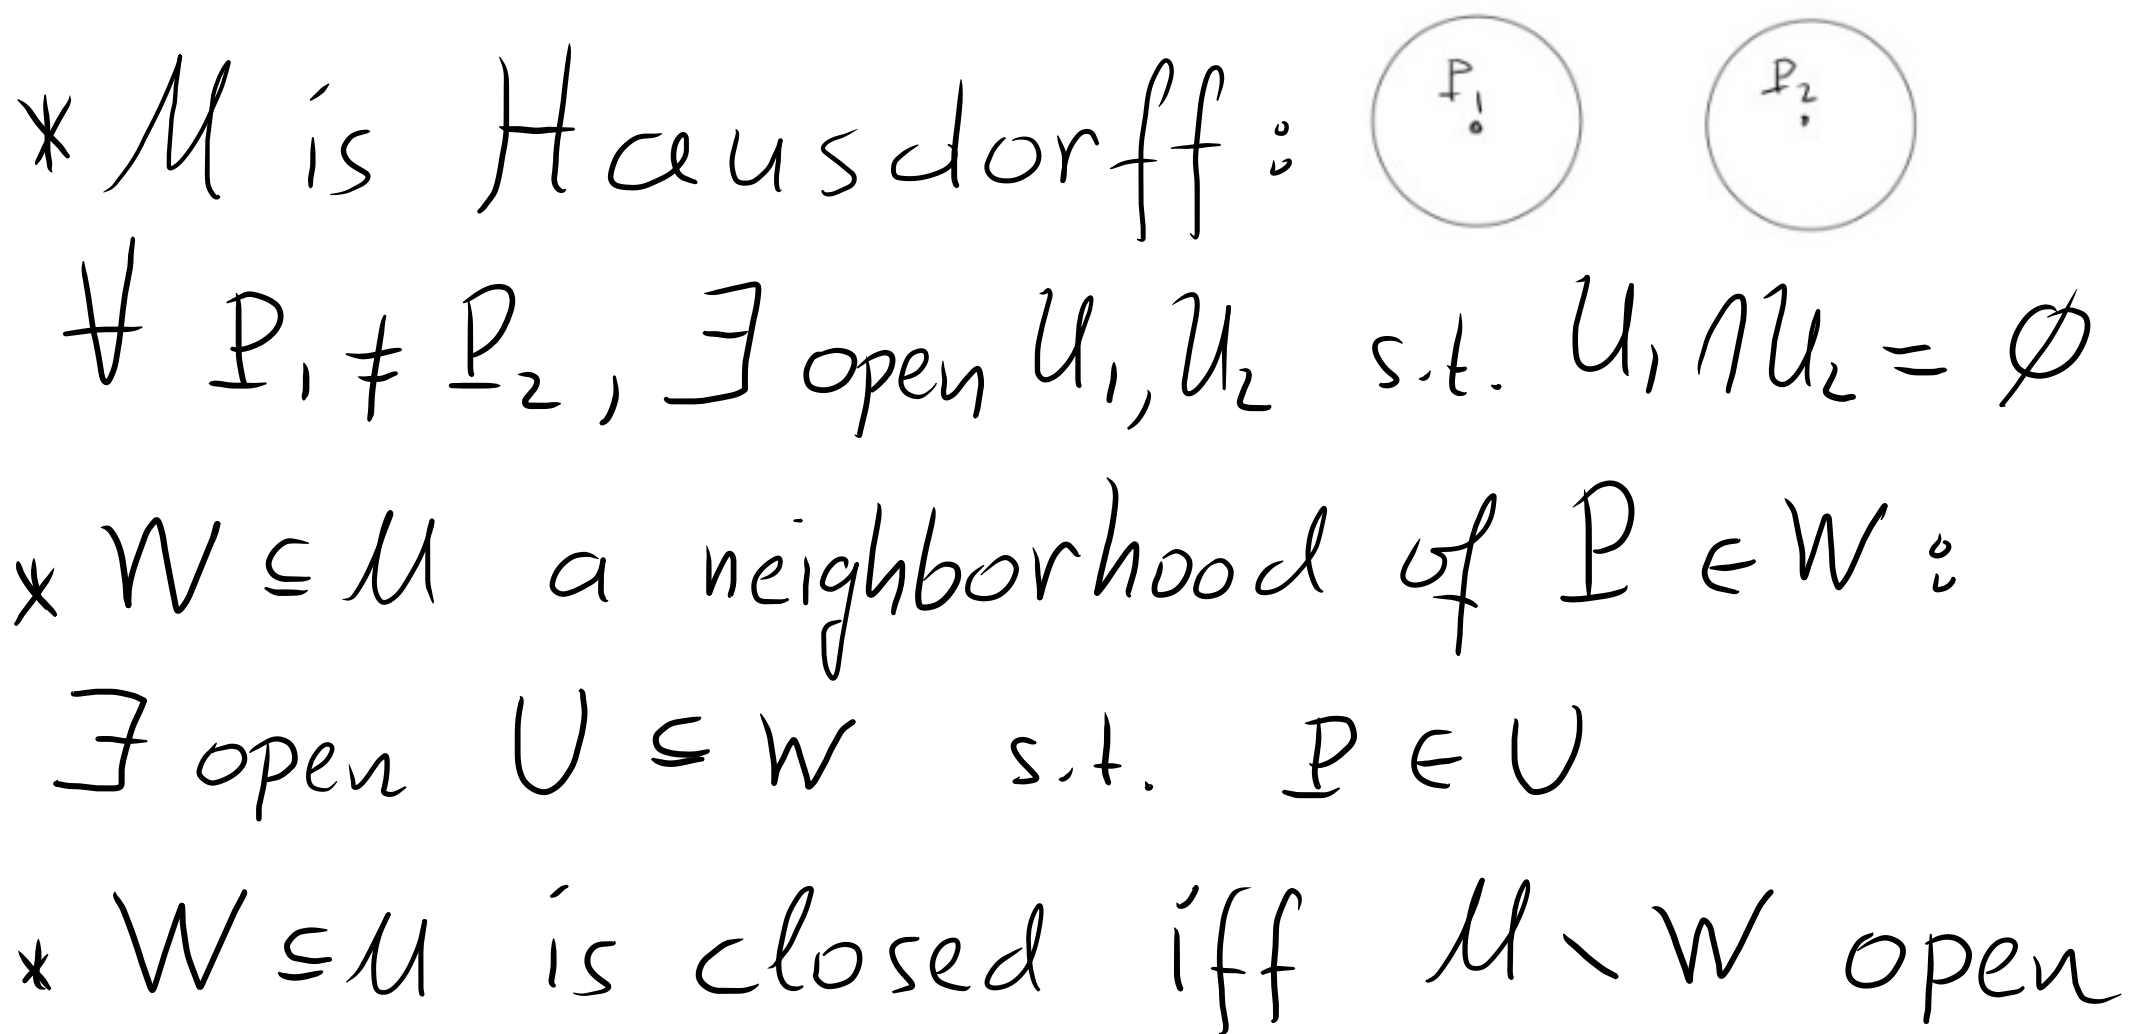 * M is Hausdorff: P₁ P₂
∀ P₁ ≠ P₂, ∃ open U₁, U₂ s.t. U₁ ∩ U₂ = ∅
* W ⊆ M a neighborhood of P ∈ W:
∃ open U ⊆ W s.t. P ∈ U
* W ⊆ M is closed iff M \ W open